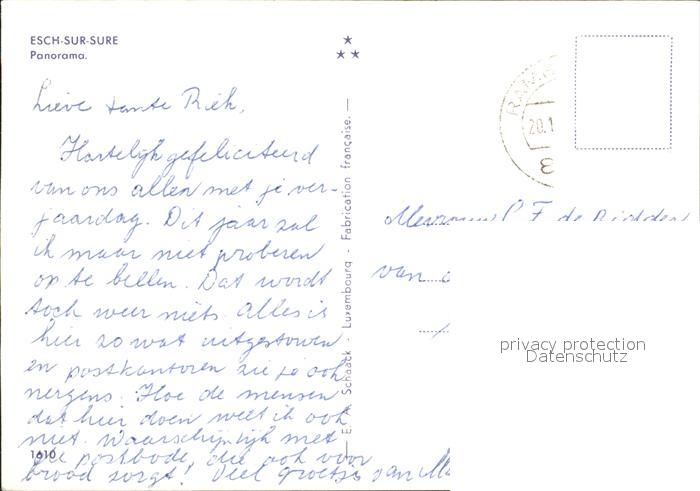 ESCH-SUR-SURE
Panorama.
Lieve tante Riek,
Hartelijk gefeliciteerd
van ons allen met je ver-
jaardag. Dit jaar zal
ik maar niet proberen
op te bellen. Dat wordt
toch weer niets. Alles is
hier zo wat uitgestorven
en postkantoren zie je ook
nergens. Hoe de mensen
dat hier doen weet ik ook
niet. Waarschijnlijk met
de postbode, die ook voor
brood zorgt! Veel groetjes van
1610
E. A. Schaack Luxembourg - Fabrication française.
20.1
Mevrouw P F de
van
privacy protection
Datenschutz